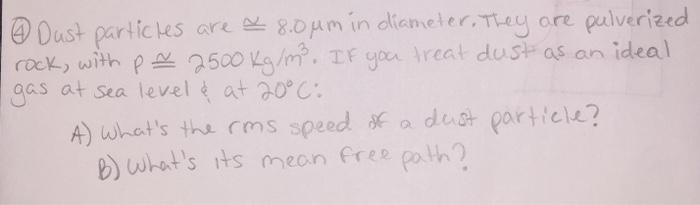 ④ Dust particles are ≅ 8.0 μm in diameter. They are pulverized
rock, with ρ ≅ 2500 kg/m³. If you treat dust as an ideal
gas at sea level & at 20°C:
A) What's the rms speed of a dust particle?
B) What's its mean free path?